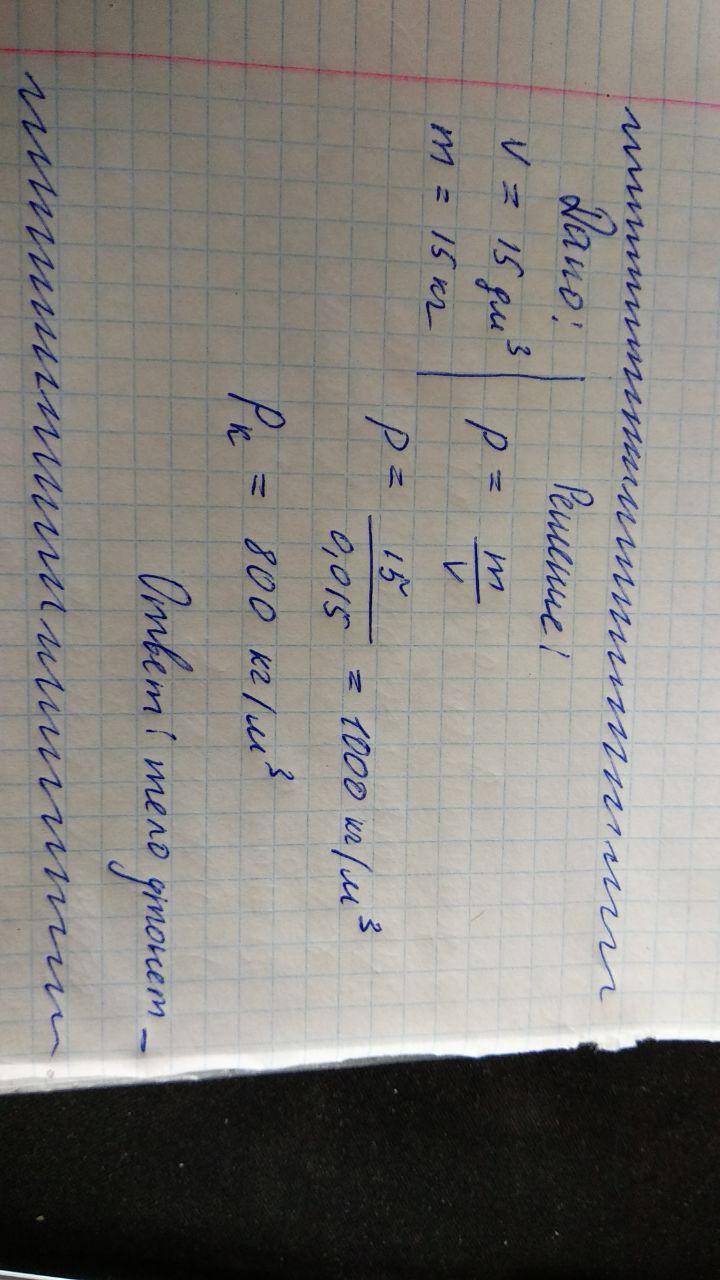 Дано:
V = 15 дм³
m = 15 кг
Решение:
p = m/V
p = 15/0,015 = 1000 кг/м³
pк = 800 кг/м³
Ответ: тело утонет